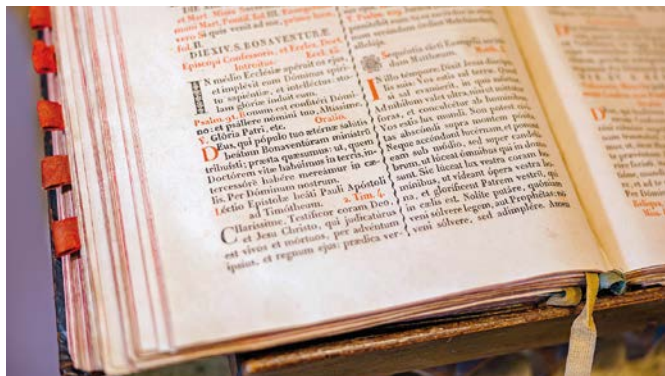 et Mart. Missa
muni Mart. Pontif. fol.
vero Si quis venit ad me, primo loco,
fol. II.
DIE XIV. S. BONAVENTURÆ
Episcopi Confessoris, et Eccles. Doct.
Introitus. Eccli. 15.
IN médio Ecclésiæ apéruit os ejus,
et implévit eum Dóminus spíri-
tu sapiéntiæ, et intelléctus, sto-
lam glóriæ índuit eum.
Psalm. 91. Bonum est confitéri Dómi-
no: et psállere nómini tuo, Altíssime.
℣. Glória Patri, etc.
Oratio.
DEus, qui pópulo tuo ætérnæ salútis
beátum Bonaventúram minístrum
tribuísti; præsta quæsumus: ut, quem
Doctórem vitæ habúimus in terris, in-
tercessórem habére mereámur in cæ-
lis. Per Dóminum nostrum.
Léctio Epístolæ beáti Pauli Apóstoli
ad Timótheum. 2. Tim. 4.
CHaríssime, Testíficor coram Deo,
et Jesu Christo, qui judicatúrus
est vivos et mórtuos, per advéntum
ipsíus, et regnum ejus: prædica ver-
secúndum órdinem Melchísedech,
allelúja.
Sequéntia sancti Evangélii secún-
dum Matthæum.
IN illo témpore: Dixit Jesus discípu-
lis suis: Vos estis sal terræ. Quod
si sal evanúerit, in quo saliétur?
Ad níhilum valet ultra, nisi ut mittátur
foras, et conculcétur ab homínibus.
Vos estis lux mundi. Non potest cívi-
tas abscóndi supra montem pósita.
Neque accéndunt lucérnam, et ponunt
eam sub módio, sed super candelá-
brum, ut lúceat ómnibus qui in domo
sunt. Sic lúceat lux vestra coram ho-
mínibus, ut vídeant ópera vestra bo-
na, et gloríficent Patrem vestrum, qui
in cælis est. Nolíte putáre, quóniam
veni sólvere legem, aut Prophétas, no
veni sólvere, sed adimplére. Amen